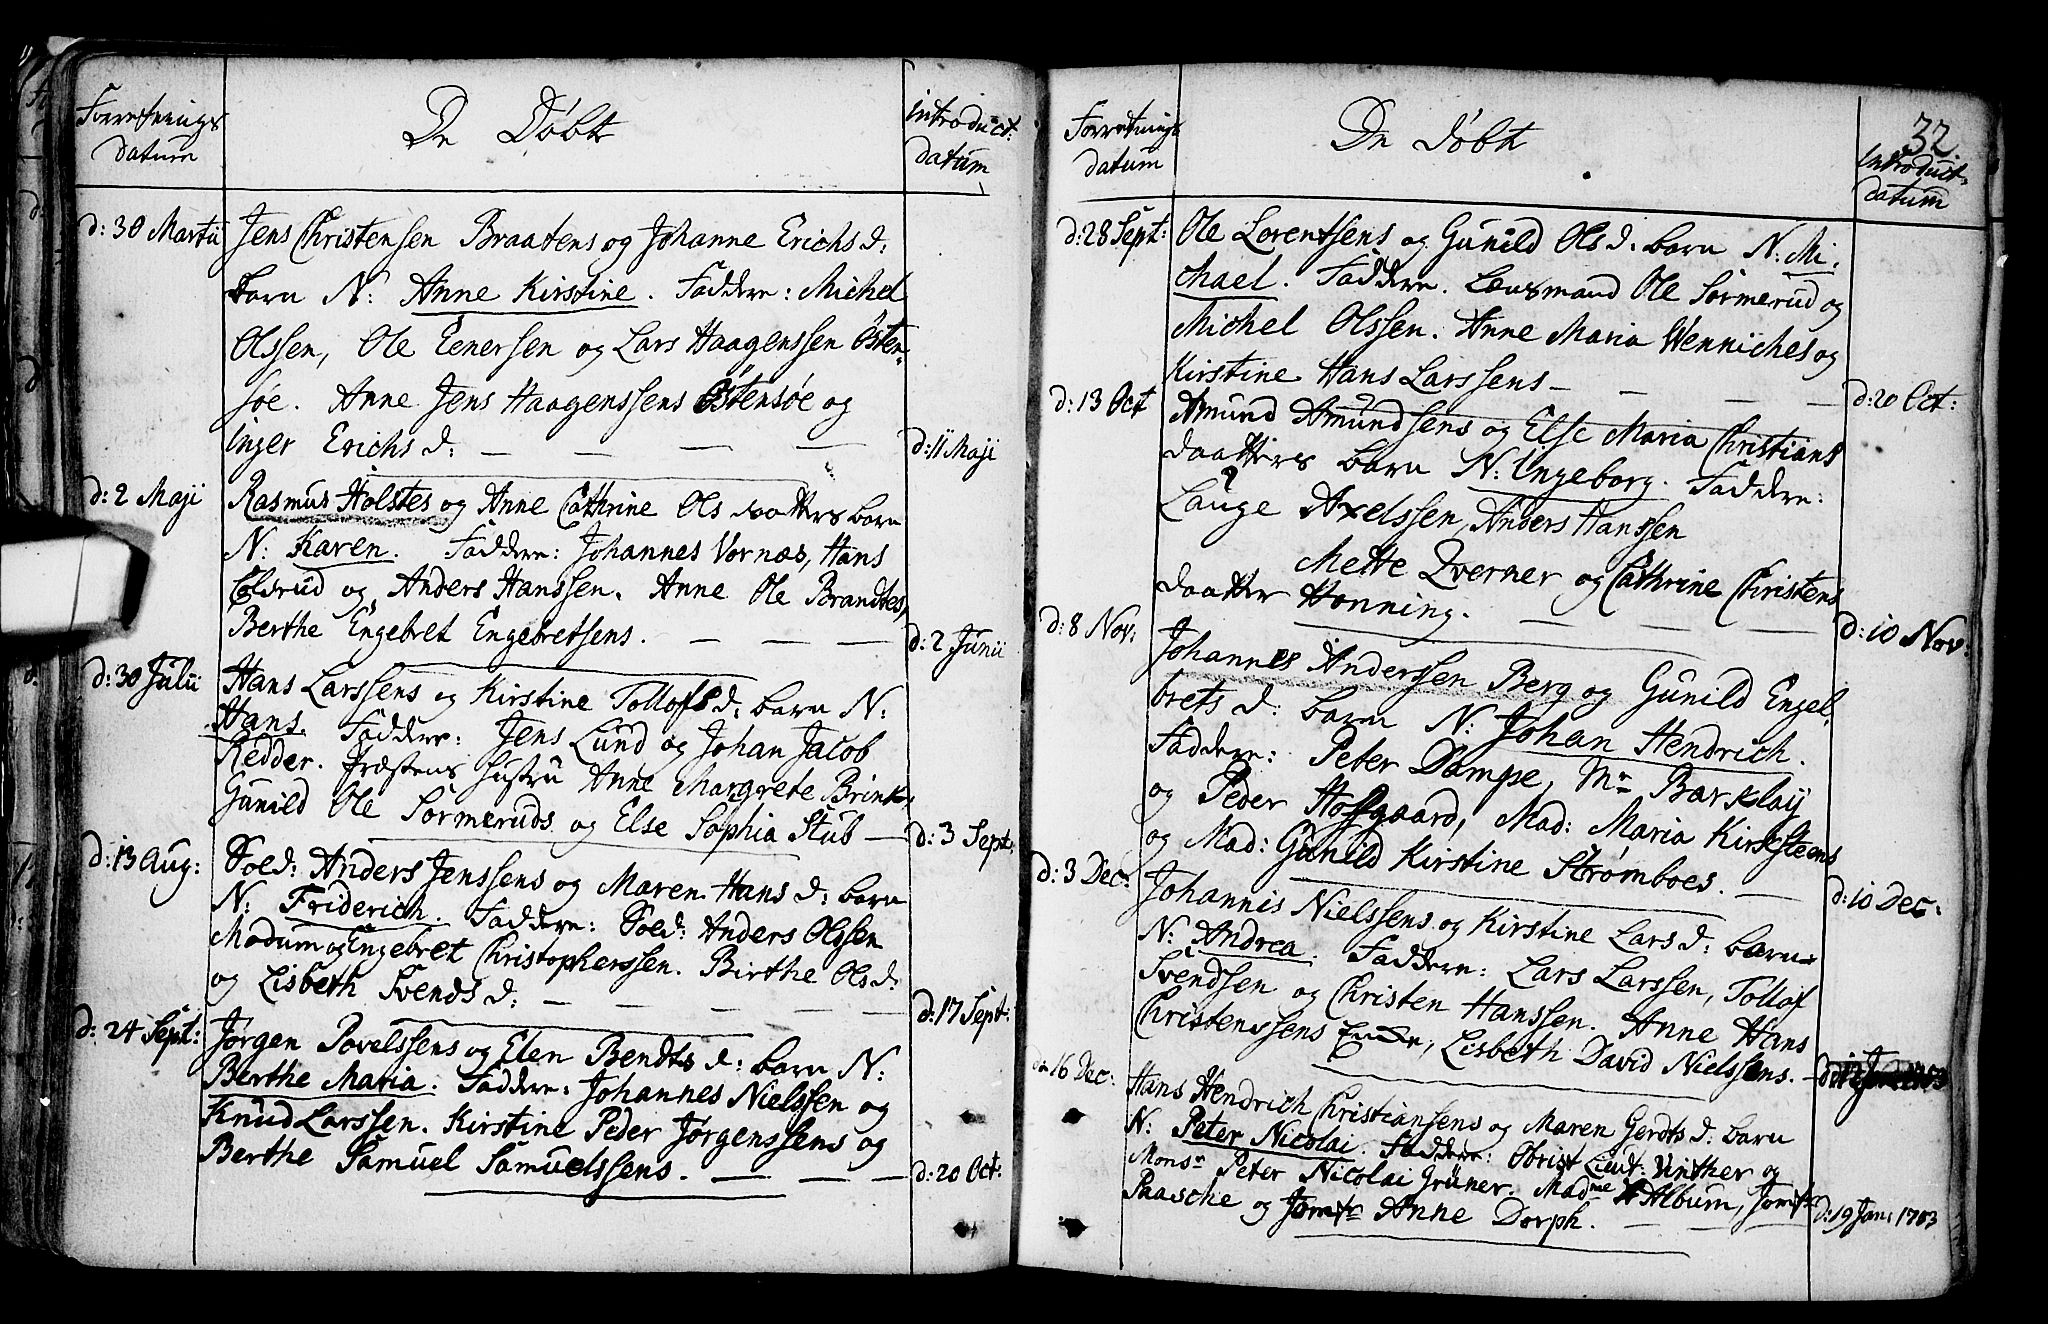 Forretnings datum
De Döbt
Introduct: datum
d: 30 Martii Jens Christensen Braatens og Johanne Erichs d:
barn N: Anne Kirstine. Faddere: Michel
Olssen, Ole Eenersen og Lars Haagenssen Östen-
söe. Anne Jens Haagenssens Östensöe og
Inger Erichs d: — — — — d: 11 Maji
d: 2 Maji Rasmus Holstes og Anne Cathrine Ols daatters barn
N: Karen. Faddere: Johannes Vornæs, Hans
Coldrud og Anders Hanssen. Anne Ole Brandtes,
Berthe Engebret Engebretsens. — — — d: 2 Junii
d: 30 Julii Hans Larssens og Kirstine Tollofs d: barn N:
Hans. Faddere: Jens Lund og Johan Jacob
Redder. Præstens Hustru Anne Margrete Brink,
Gunild Ole Sörmeruds og Else Sophia Stub — d: 3 Sept:
d: 13 Aug: Sold: Anders Jenssens og Maren Hans d: barn
N: Friderich. Faddere: Sold: Anders Olssen
Modum og Engebret Christopherssen. Birthe Ols d:
og Lisbeth Svends d: — — — — d: 17 Sept:
d: 24 Sept: Jørgen Povelssens og Elen Bendts d: barn N:
Berthe Maria. Faddere: Johannes Nielssen og
Knud Larssen. Kirstine Peder Jørgenssens og
Berthe Samuel Samuelssens. — — — d: 20 Oct:
32.
Forretnings datum
De Döbt
Introduct: datum
d: 28 Sept: Ole Lorentsens og Gunild Ols d: barn N: Mi-
chael. Faddere. Lensmand Ole Sörmerud og
Michel Olssen. Anne Maria Wenniches og
Kirstine Hans Larssens — — — — d: 20 Oct:
d: 13 Oct Amund Amundsens og Else Maria Christians
daatters barn N: Ingeborg. Faddere:
Lauge Axelssen, Anders Hanssen
Mette Qverner og Cathrine Christens
daatter Honning. — — — d: 10 Nov:
d: 8 Nov: Johannes Anderssen Berg og Gunild Engel
brets d: barn N: Johan Hendrich.
Faddere: Peter Dampe, Mr Barklay
og Peder Hofgaard, Mad: Maria Kirksteens
og Mad: Gunild Kirstine Strømboes. — d: 10 Dec:
d: 3 Dec: Johannis Nielssens og Kirstine Lars d: barn
N: Andrea. Faddere: Lars Larssen, Tollof
Svendsen og Christen Hanssen. Anne Hans
Christenssens Ende, Lisbeth David Nielssens.
d: 16 Dec: Hans Hendrich Christiansens og Maren Gerdts d: barn
N: Peter Nicolai. Faddere: Obrist Lieut: Vinther og
Monsr Peter Nicolai Grüner. Madme Album, Jomfr
Paasche og Jomfr Anne Dorph. — — — d: 19 Jan: 1783